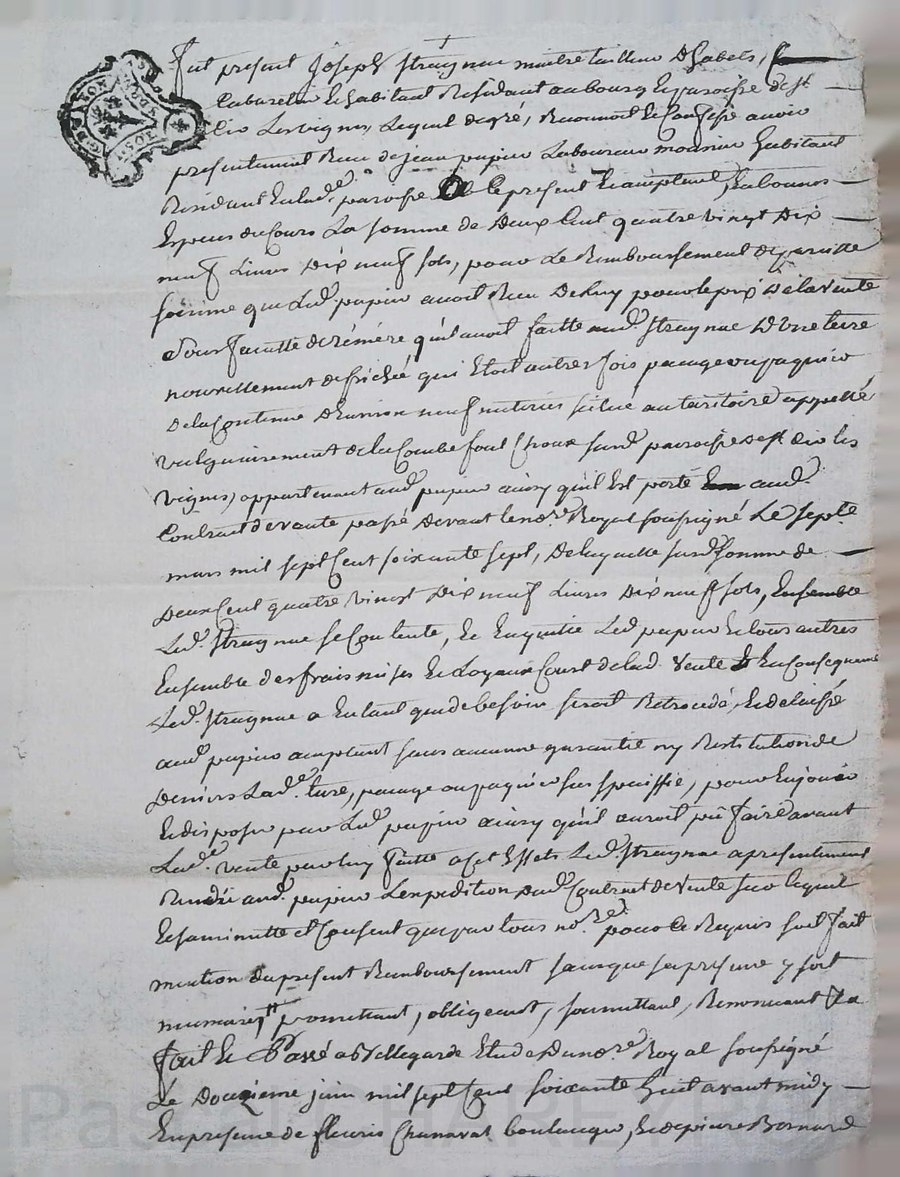 Fut present Joseph Strugnac maitre tailleur d'habits,
Cabaretier et habitant Residant au bourg et paroisse de St
dix Lesvignes, Lequel de gré, Reconnoit et Confesse avoir
presentement Reçu de jean pupier Laboureur monsieur habitant
Residant En lad.e paroisse le present et acceptant, En bonnes
Especes du Cours La somme de Deux Cent quatre vingt Dix
neuf Livres Dix neuf sols, pour le Remboursement de pareille
somme que Led. pupier avoit Reçu De luy pour le prix De la Vente
sous faculté de réméré qu'il avoit faitte aud. Strugnac D'une terre
nouvellement defrichéé qui Etoit autres fois pacage ou paquier
De la Contenue D'Environ neuf meterées scitué au territoire appellé
vulguairement de la Combe Choux Surd. paroisse de St dix les
vignes, appartenant aud. pupier ainsy qu'il Est porté aud.
Contract de vante passé Devant le no.re Royal soussigné Le sept.e
mars mil sept Cent soixante sept, De laquelle susd. somme de
Deux Cent quatre vingt Dix neuf Livres Dix neuf sols, Ensemble
Led. Strugnac se Contente, Et En quitte Led. pupier Et tous autres
Ensemble des frais mises Et Loyaux Coust de lad. Vente Et En Consequence
Led. Strugnac a En tant que de besoin seroit Retrocedé, Et delaissé
aud. pupier acceptant sans aucunne garantie ny Restitution de
Deniers Lad.e terre, pacage ou paquier sus speciffié, pour En jouir
Et disposer par Led. pupier ainsy qu'il auroit pû fairé avant
Lad.e vente par luy faitte a Cet Effets Led. Strugnac a presentement
Rendu aud. pupier L'expedition Dud. Contract de Vente sur Lequel
Et sa minutte il Consent que par tous no.res pour Ce Requis soit fait
mention du present Remboursement sans que sa presence y soit
necessaire promettant, obligeant, soumettant, Renonceant &a
fait Et Passé a Bellegarde Etude Du no.re Royal soussigné
Le Douzieme juin mil sept Cent soixante huit avant midy
En presence de fleuris Chanavat boulanger, Et de pierre Bernard